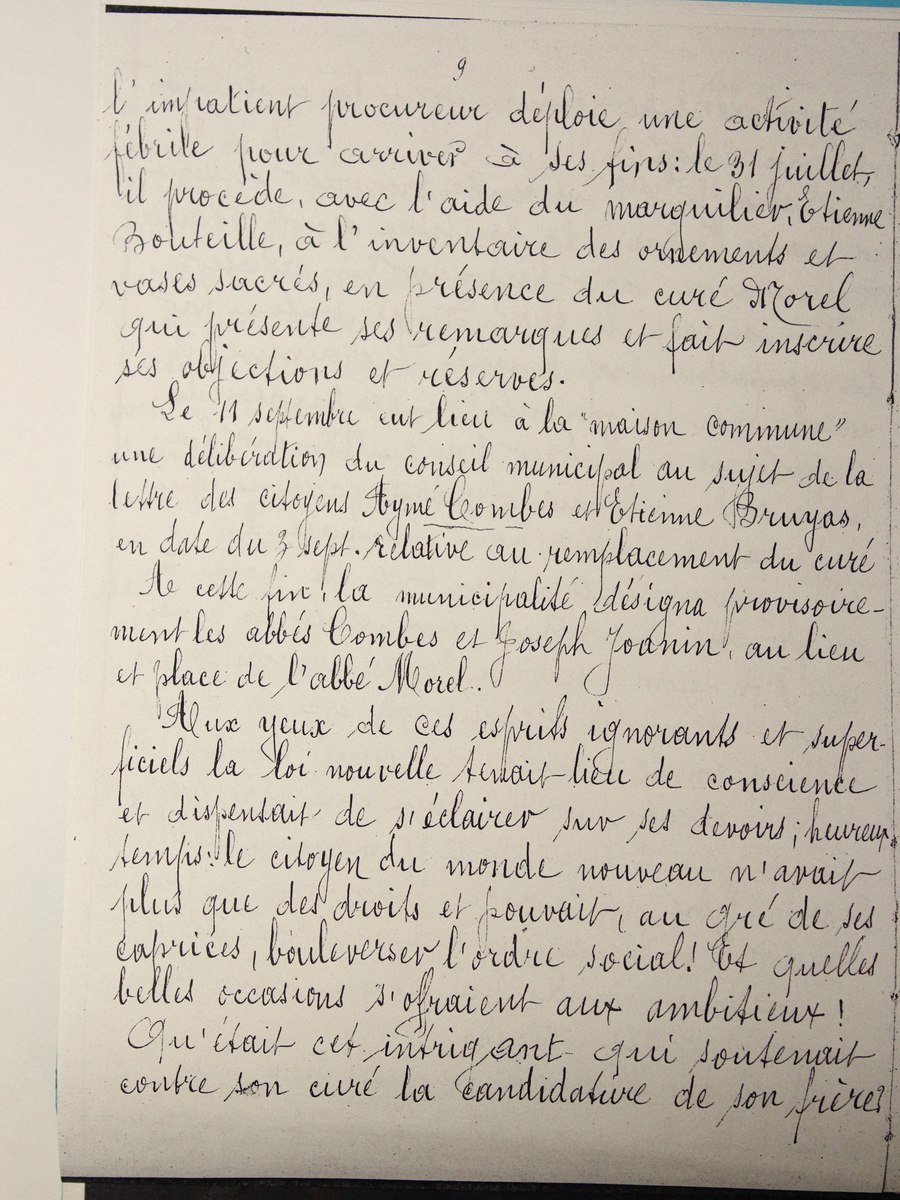 9
l'impatient procureur déploie une activité
fébrile pour arriver à ses fins: le 31 juillet,
il procède, avec l'aide du marguilier, Etienne
Bouteille, à l'inventaire des ornements et
vases sacrés, en présence du curé Morel
qui présente ses remarques et fait inscrire
ses objections et réserves.
Le 11 septembre eut lieu à la "maison commune"
une délibération du conseil municipal au sujet de la
lettre des citoyens Aymé Combes et Etienne Bruyas,
en date du 3 sept. relative au remplacement du curé
A cette fin, la municipalité désigna provisoire-
ment les abbés Combes et Joseph Joanin, au lieu
et place de l'abbé Morel.
Aux yeux de ces esprits ignorants et super-
ficiels la loi nouvelle tenait lieu de conscience
et dispensait de s'éclairer sur ses devoirs; heureux
temps: le citoyen du monde nouveau n'avait
plus que des droits et pouvait, au gré de ses
caprices, bouleverser l'ordre social! Et quelles
belles occasions s'ofraient aux ambitieux!
Qu'était cet intrigant qui soutenait
contre son curé la candidature de son frère?